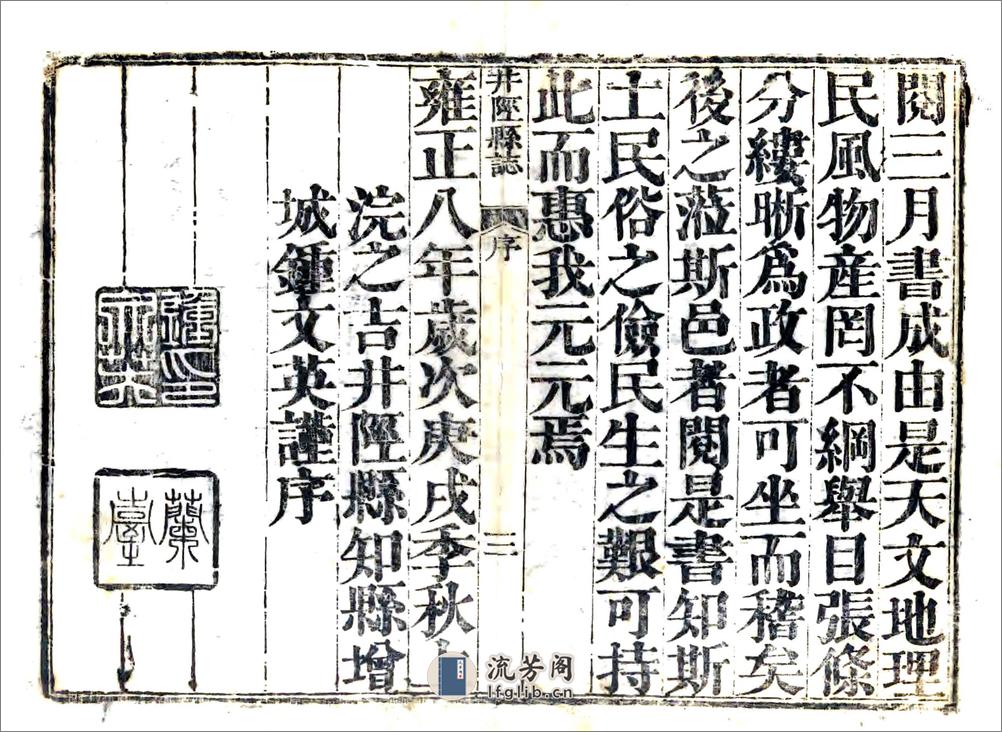 閱三月書成由是天文地理
民風物産罔不綱舉目張條
分縷晰爲政者可坐而稽矣
後之蒞斯邑者閱是書知斯
土民俗之儉民生之艱可持
此而惠我元元焉
井陘縣誌
序
雍正八年歲次庚戌季秋
浣之吉井陘縣知縣增
城鍾文英謹序
鍾印文英
蘭臺
流芳阁
lfglib.cn